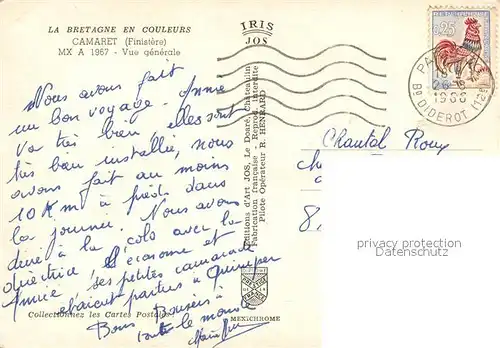 LA BRETAGNE EN COULEURS
CAMARET (Finistère)
MX A 1967 - Vue générale
IRIS
JOS
0,25
PARIS
18 H
26-8
1966
BD DIDEROT (12E)
Nous avons fait
un bon voyage. Annie
va très bien elles sont
très bien installée, nous
avons fait au moins
10 Km à pieds dans
la journée. Nous avons
diné à la colo avec la
directrice l'économe et
Annie ses petites camarades
étaient parties à Quimper
Bons Baisers à
toute le monde
Editions d'Art JOS, Le Doaré, Châteaulin
Fabrication française - Reprod. interdite
Pilote Opérateur R. HENRARD
Chantal Roux
8,
privacy protection
VERONIKA
Collectionnez les Cartes Postales
MEXICHROME